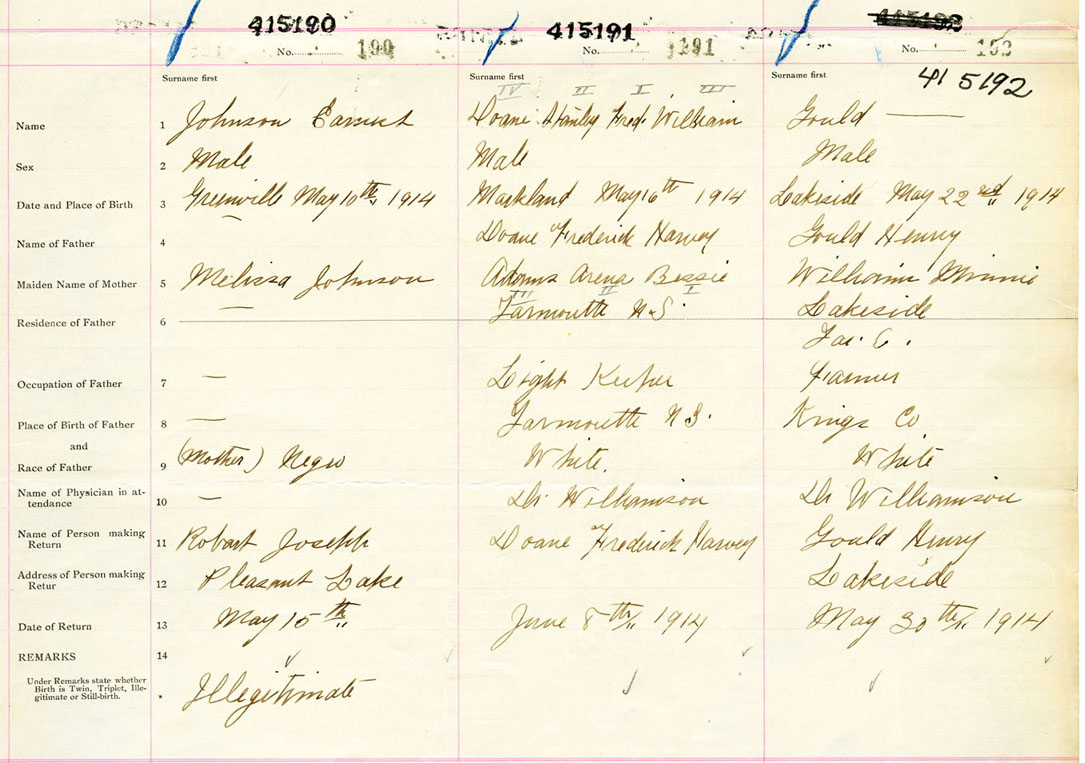 415190 415191 415192
No. 190 No. 191 No. 192
Surname first Surname first Surname first 415192
IV II I III
Name 1 Johnson Earnest Doane Stanley Fred. William Gould —
Sex 2 Male Male Male
Date and Place of Birth 3 Greenville May 10th 1914 Markland May 16th 1914 Lakeside May 22nd 1914
Name of Father 4 Doane Frederick Harvey Gould Henry
Maiden Name of Mother 5 Melissa Johnson Adams Arena Bessie Williams Minnie
III II I
Residence of Father 6 — Yarmouth N.S. Lakeside
Yar. C.
Occupation of Father 7 — Light Keeper Farmer
Place of Birth of Father 8 — Yarmouth N.S. Kings Co
and
Race of Father 9 (Mother) Negro White. White
Name of Physician in at-
tendance 10 — Dr Williamson Dr Williamson
Name of Person making
Return 11 Robart Joseph Doane Frederick Harvey Gould Henry
Address of Person making
Retur 12 Pleasant Lake Lakeside
Date of Return 13 May 15th June 8th 1914 May 30th 1914
REMARKS 14
Under Remarks state whether
Birth is Twin, Triplet, Ille-
gitimate or Still-birth. Illegitimate